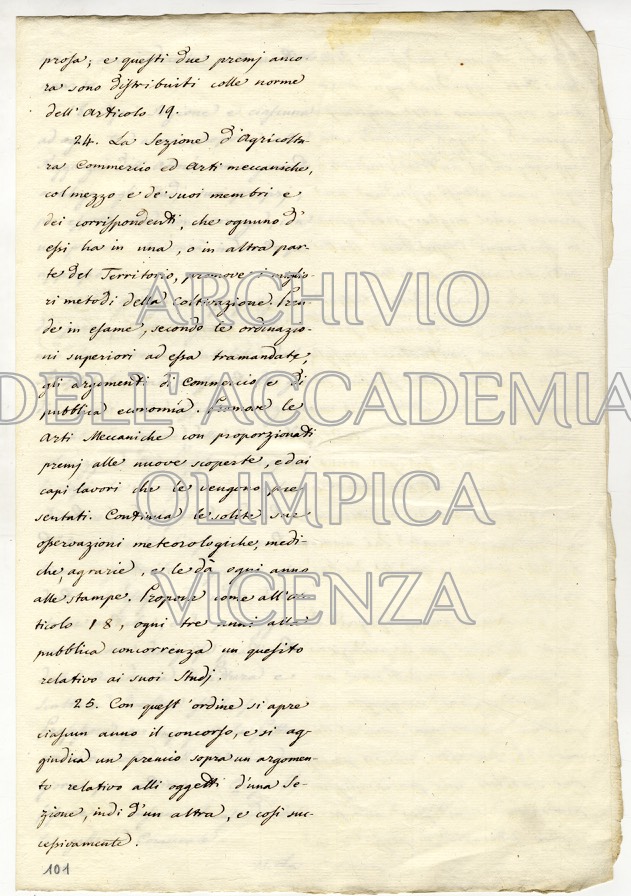 prosa; e questi due premj anco-
ra sono distribuiti colle norme
dell'Articolo 19.
24. La Sezione d'Agricoltu-
ra Commercio ed Arti meccaniche,
col mezzo e de' suoi membri e
dei corrispondenti, che ognuno d'
essi ha in una, o in altra par-
te del Territorio, promove i miglio-
ri metodi della Coltivazione. Pren-
de in esame, secondo le ordinazio-
ni superiori ad essa tramandate,
gli argomenti di Commercio e di
pubblica economia. Promove le
Arti Meccaniche con proporzionati
premj alle nuove scoperte, ed ai
capi lavori che le vengono pre-
sentati. Continua le solite sue
opervazioni meteorologiche, medi-
che, agrarie, e le dà ogni anno
alle stampe. Propone come all'ar-
ticolo 18, ogni tre anni alla
pubblica concorrenza un quesito
relativo ai suoi Studj.
25. Con quest'ordine si apre
ciascun anno il concorso, e si ag-
giudica un premio sopra un argomen-
to relativo alli oggetti d'una Se-
zione, indi d'un altra, e così suc-
cessivamente.
101
ARCHIVIO
DELL'ACCADEMIA
OLIMPICA
VICENZA